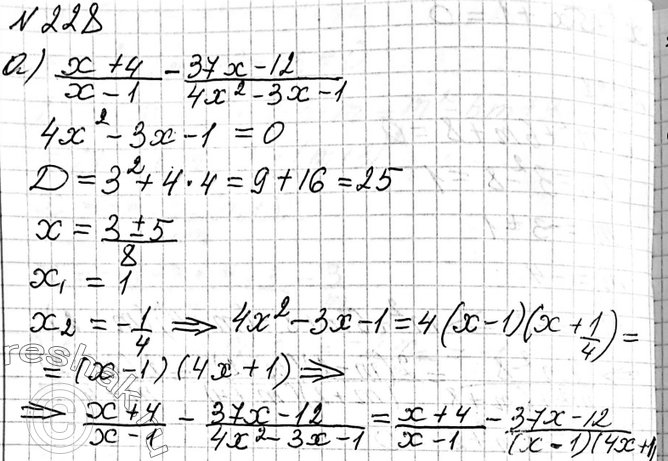 N228
а) (x+4)/(x-1) - (37x-12)/(4x²-3x-1)
4x²-3x-1 = 0
D = 3²+4·4 = 9+16 = 25
x = (3±5)/8
x₁ = 1
x₂ = -1/4 ⇒ 4x²-3x-1 = 4(x-1)(x+1/4) =
= (x-1)(4x+1) ⇒
⇒ (x+4)/(x-1) - (37x-12)/(4x²-3x-1) = (x+4)/(x-1) - (37x-12)/((x-1)(4x+1)
reshak.ru